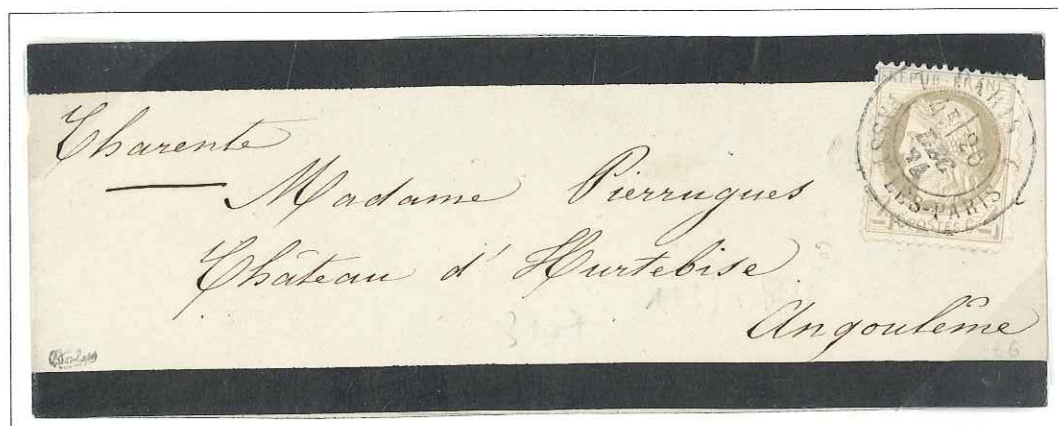 Charente
Madame Pierrugues
Château d'Hurtebise
Angoulême
REPUB. FRANC
LES-PARIS
POSTES